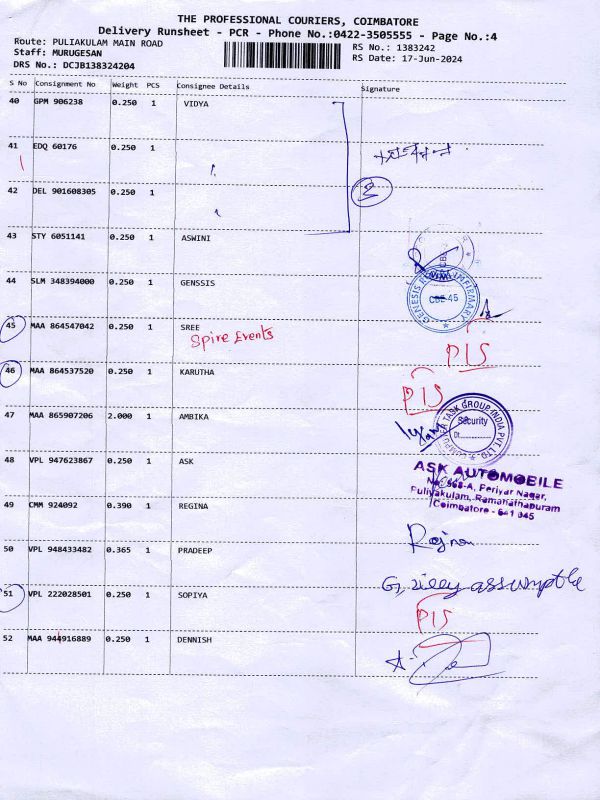 THE PROFESSIONAL COURIERS, COIMBATORE
Delivery Runsheet - PCR - Phone No.:0422-3505555 - Page No.:4
Route: PULIAKULAM MAIN ROAD
Staff: MURUGESAN
DRS No.: DCJB138324204
RS No.: 1383242
RS Date: 17-Jun-2024
S No Consignment No Weight PCS Consignee Details Signature
40 GPM 906238 0.250 1 VIDYA
41 EDQ 60176 0.250 1
42 DEL 901608305 0.250 1
43 STY 6051141 0.250 1 ASWINI
44 SLM 348394000 0.250 1 GENSSIS
GENESIS INFIRMARY
CBE-45
45 MAA 864547042 0.250 1 SREE
Spire Events
PIS
46 MAA 864537520 0.250 1 KARUTHA
PIS
47 MAA 865907206 2.000 1 AMBIKA
TASK GROUP INDIA PVT. LTD.
Security
Dt.
48 VPL 947623867 0.250 1 ASK
ASK AUTOMOBILE
No. 568-A, Periyar Nagar,
Puliyakulam, Ramanathapuram
Coimbatore - 641 045
49 CMM 924092 0.390 1 REGINA
50 VPL 948433482 0.365 1 PRADEEP
51 VPL 222028501 0.250 1 SOPIYA
PIS
52 MAA 944916889 0.250 1 DENNISH